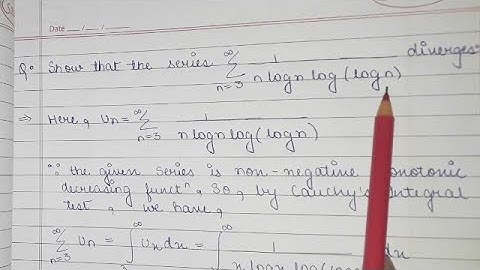 Date ___/___/___
Q. Show that the series ∞∑n=3 1/(n logn log(logn)) diverges.
⇒ Here, Un = ∞∑n=3 1/(n logn log(logn))
∵ the given series is non-negative monotonic
decreasing functⁿ. So, by Cauchy's integral
test, we have,
∞∑n=3 Un = ∫∞ Un dx = ∫∞ 1/(x logx log(logx)) dx